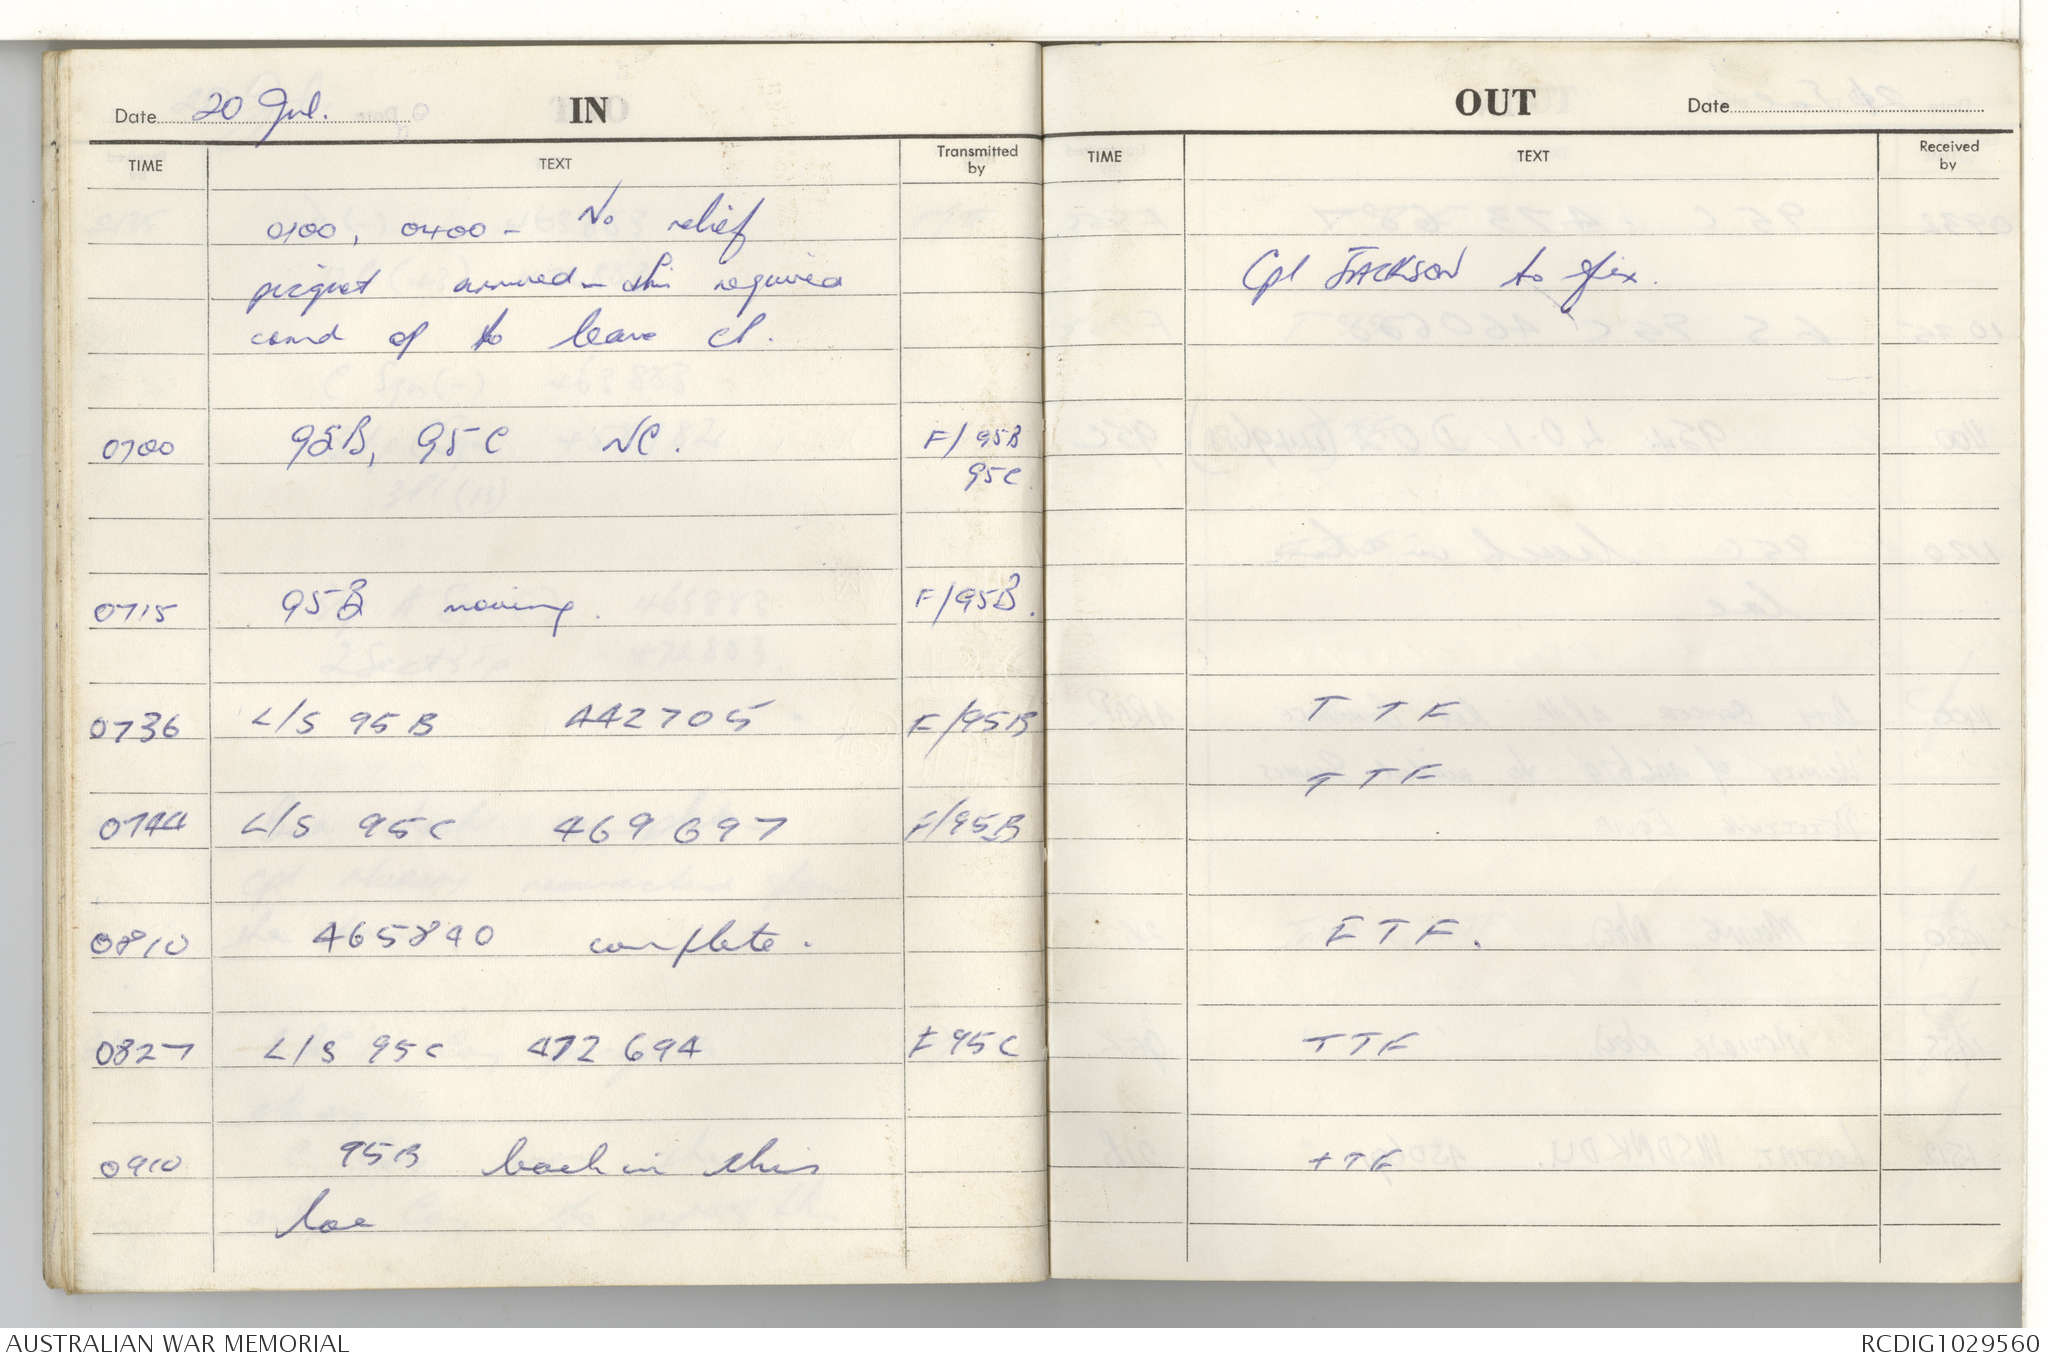 Date 20 Jul. IN
TIME TEXT Transmitted by
0100, 0400 - No relief
piquet arrived - this required
comd of to leave CP.
0700 95B, 95C NC. F/95B
95C
0715 95B moving. F/95B.
0736 L/S 95B 442705 F/95B
0744 L/S 95C 469697 F/95B
0810 465840 complete.
0827 L/S 95C 472694 F 95C
0910 95B back in this
loc
OUT Date
TIME TEXT Received by
Cpl JACKSON to fix.
T T F
T T F
E T F.
T T F
T T F
AUSTRALIAN WAR MEMORIAL
RCDIG1029560